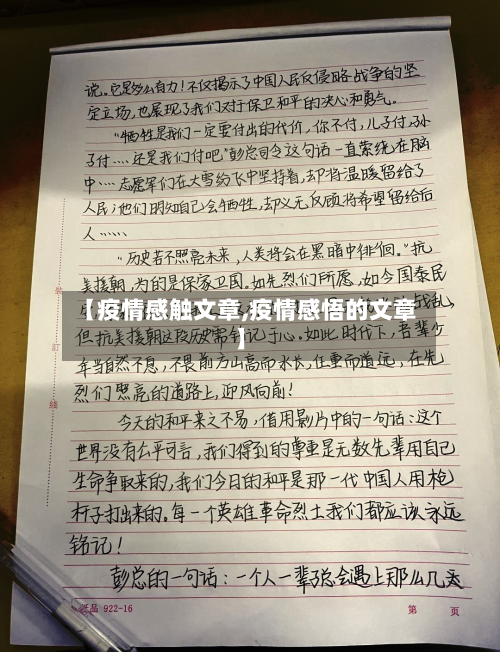 说。它是多么有力！不仅揭示了中国人民反侵略战争的坚
定立场，也展现了我们对于保卫和平的决心和勇气。
"牺牲是我们一定要付出的代价，你不付，儿子付，孙
子付……还是我们付吧"彭总司令这句话一直萦绕在脑
中……志愿军们在大雪纷飞中坚持着，却将温暖留给了
人民；他们明知自己会牺牲，却义无反顾将希望留给后
人……
"历史若不照亮未来，人类将会在黑暗中徘徊。"抗
美援朝，为的是保家卫国。如先烈们所愿，如今国泰民
战乱，
【疫情感触文章,疫情感悟的文章
】
但抗美援朝这段历史需铭记于心。如此时代下，吾辈少
年当自然不息，不畏前方山高而水长，任重而道远，在先
烈们照亮的道路上，迎风向前！
今天的和平来之不易，借用影片中的一句话：这个
世界没有公平可言，我们得到的尊重是无数先辈用自己
生命争取来的，我们今日的和平是那一代中国人用枪
杆子打出来的。每一个英雄革命烈士我们都应该永远
铭记！
彭总的一句话：一个人一辈子总会遇上那么几
装
订
线
922-16
第 页